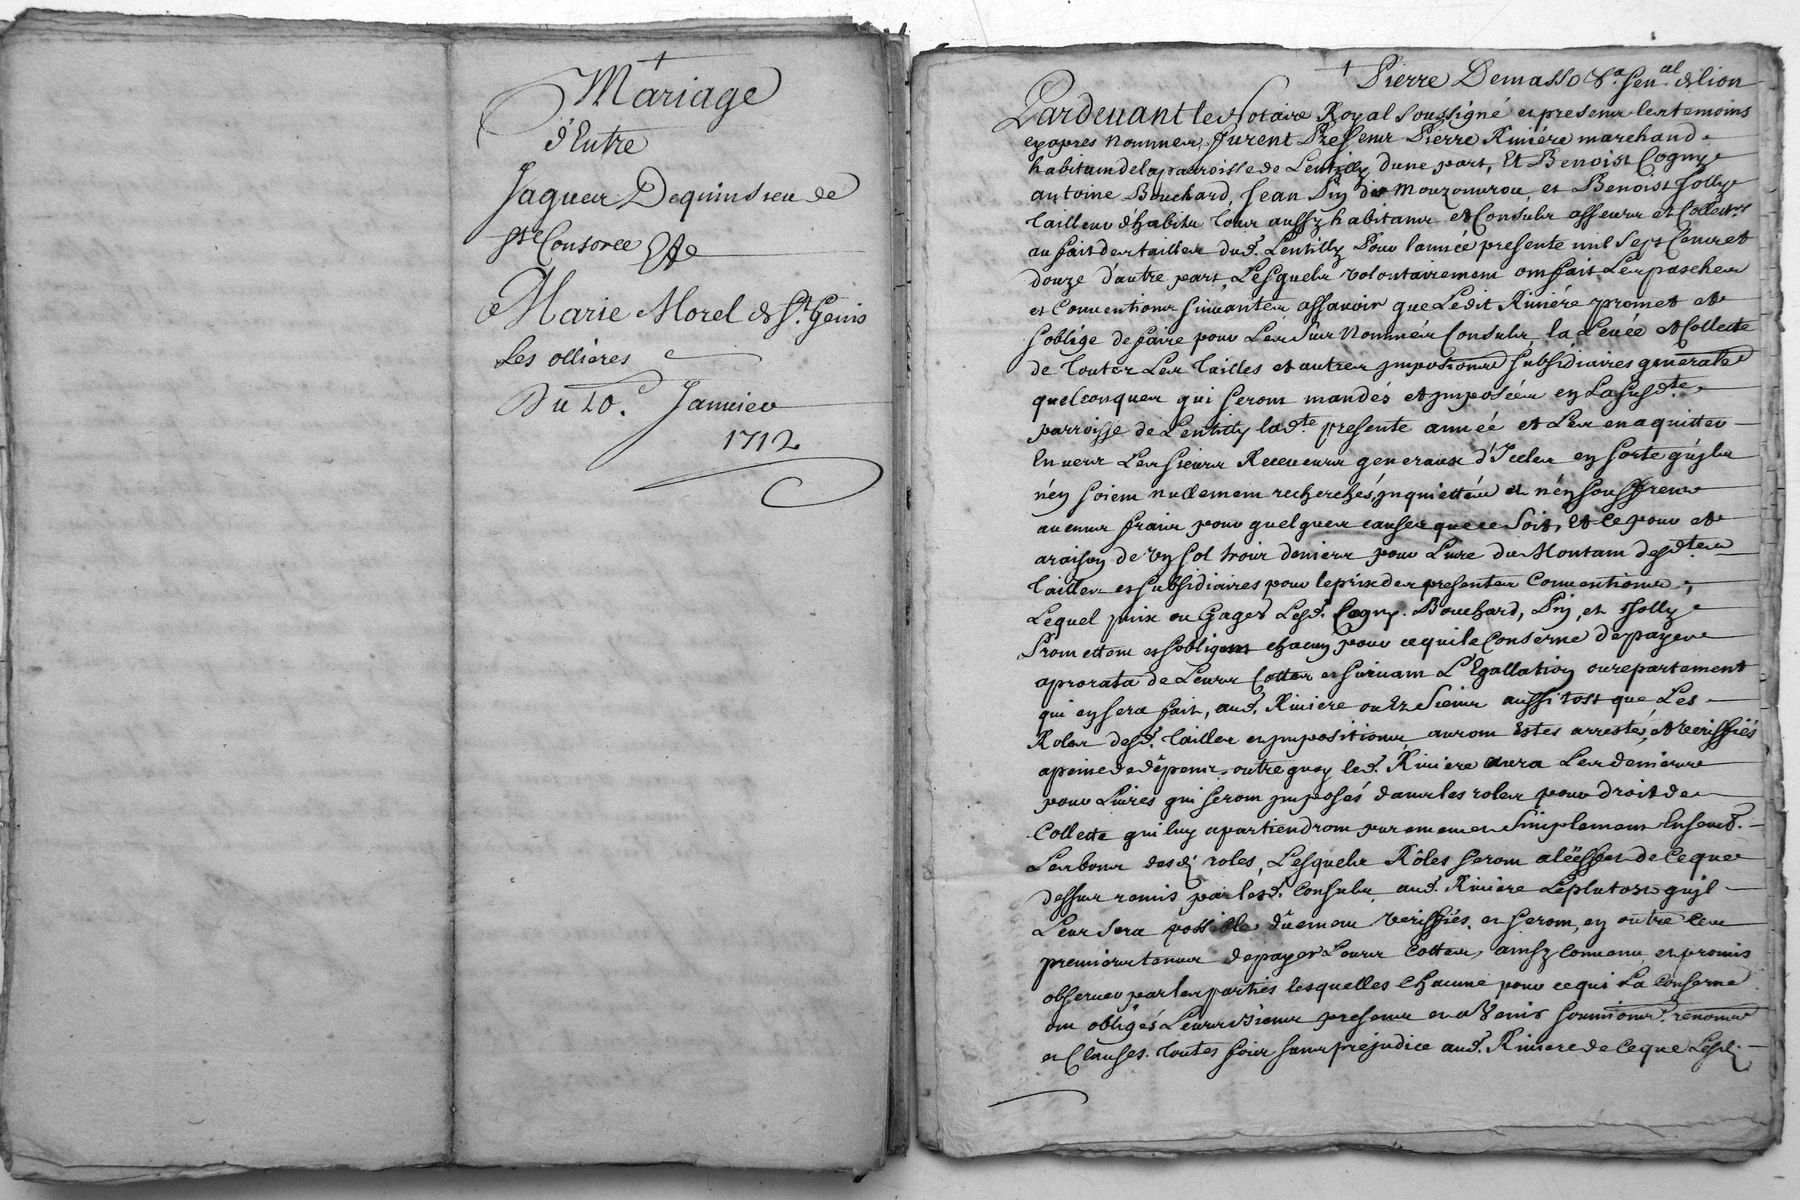 Mariage
d'Entre
Jaques Dequinsieu de
Ste Consorce Et
Marie Morel de St. Genis
Les ollieres
Du 20e. Janvier
1712
Pierre Demasso &a. Senal. de lion
Pardevant le Notaire Royal soussigné et presens les temoins
cy apres nommes, furent Presens Pierre Riviére marchand
habitant de la parroisse de Lentilly d'une part, Et Benoist Cogny
antoine Bouchard, Jean Pin dit et Benoist Jolly
Tailleur d'habits tous aussy habitans et Consuls asseeurs et Collectrs
au fait des tailles dud. Lentilly Pour l'année presente mil Sept Cens et
douze d'autre part, Lesquels volontairement ont fait Les pasches
et Conventions suivantes assavoir que Ledit Riviére promet et
s'oblige de faire pour Les sus Nommés Consuls la Levée et Collecte
de toutes Les tailles et autres impositions subsidiaires generale
quelconques qui seront mandés et imposées en La susdte.
parroisse de Lentilly lad.te presente année et Les en aquitter
Envers Les sieurs Receveurs generaux d'Icelles en sorte qu'ils
n'en soient nullement recherchés, inquiettés et n'en souffrent
aucuns frais pour quelques causes que ce soit, Et Ce pour et
a raison de un sol trois deniers pour Livre du Montant desd.tes
tailles et subsidiaires pour le prix des presentes Conventions,
Lequel prix ou Gages Lesd. Cogny. Bouchard, Pin, et Jolly
Promettent et s'obligent chacun pour ce qui le Conserne de payer
a prorata de Leurs Cottes et suivant L'Egallation ou repartement
qui en sera fait, aud. Riviere ou Es siens aussi tost que Les
Roles desd. tailles et impositions auront Estes arrestés, et veriffiés
a peine de dépens, outre quoy led. Riviere aura Les deniers
pour Livres qui seront imposés dans les roles pour droit de
Collecte qui luy apartiendront purement et simplement Ensemb.
Les bons desd. roles, Lesquels Rôles seront a
dessus remis par lesd. Consuls aud. Riviere Le plutost qu'il
Leur sera possible düement veriffiés. et seront, en outre Les
premiers tenus de payer Leurs Cottes, ainsy Convenu et promis
observer par les parties lesquelles Chacune pour ce qui La Conserne
ont obligés Leurs biens presens et a Venir soumions. renons
et Clauses. toutes fois sans prejudice aud. Riviere de ce que Lesd.